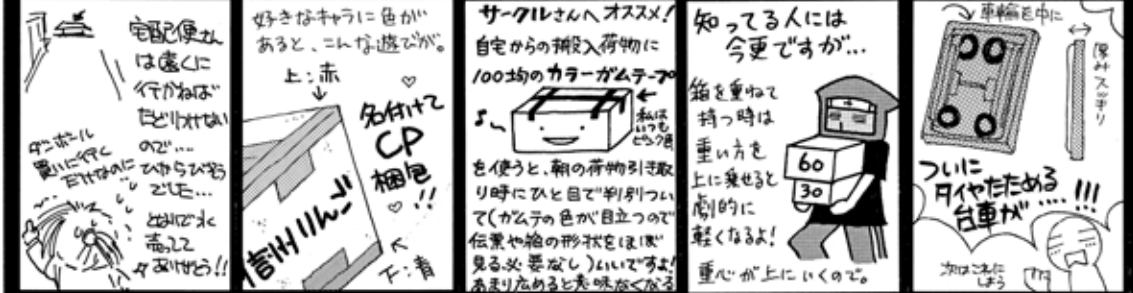 宅配便さん
は遠くに
行かねば
たどりつけない
ので…
ダンボール
買いに行く
だけなのに
ひからびそう
でした…
となりで水
売ってて
ありがとう!!
好きなキャラに色が
あると、こんな遊びが。
上:赤
↓
名付けて
CP
梱包
!!
信州りんご
下:青
サークルさんへオススメ!
自宅からの搬入荷物に
100均のカラーガムテープ
♪
私は
いつも
ピンク色
を使うと、朝の荷物引き取
り時にひと目で判別つい
て(ガムテの色が目立つので
伝票や箱の形状をほぼ
見る必要なし)いいですよ!
あまり広めると意味なくなる
知ってる人には
今更ですが…
箱を重ねて
持つ時は
重い方を
上に乗せると
劇的に
軽くなるよ!
60
30
重心が上にいくので。
車輪も中に
厚みスッキリ
ついに
タイヤたためる
台車が…!!!
次はこれに
しよう